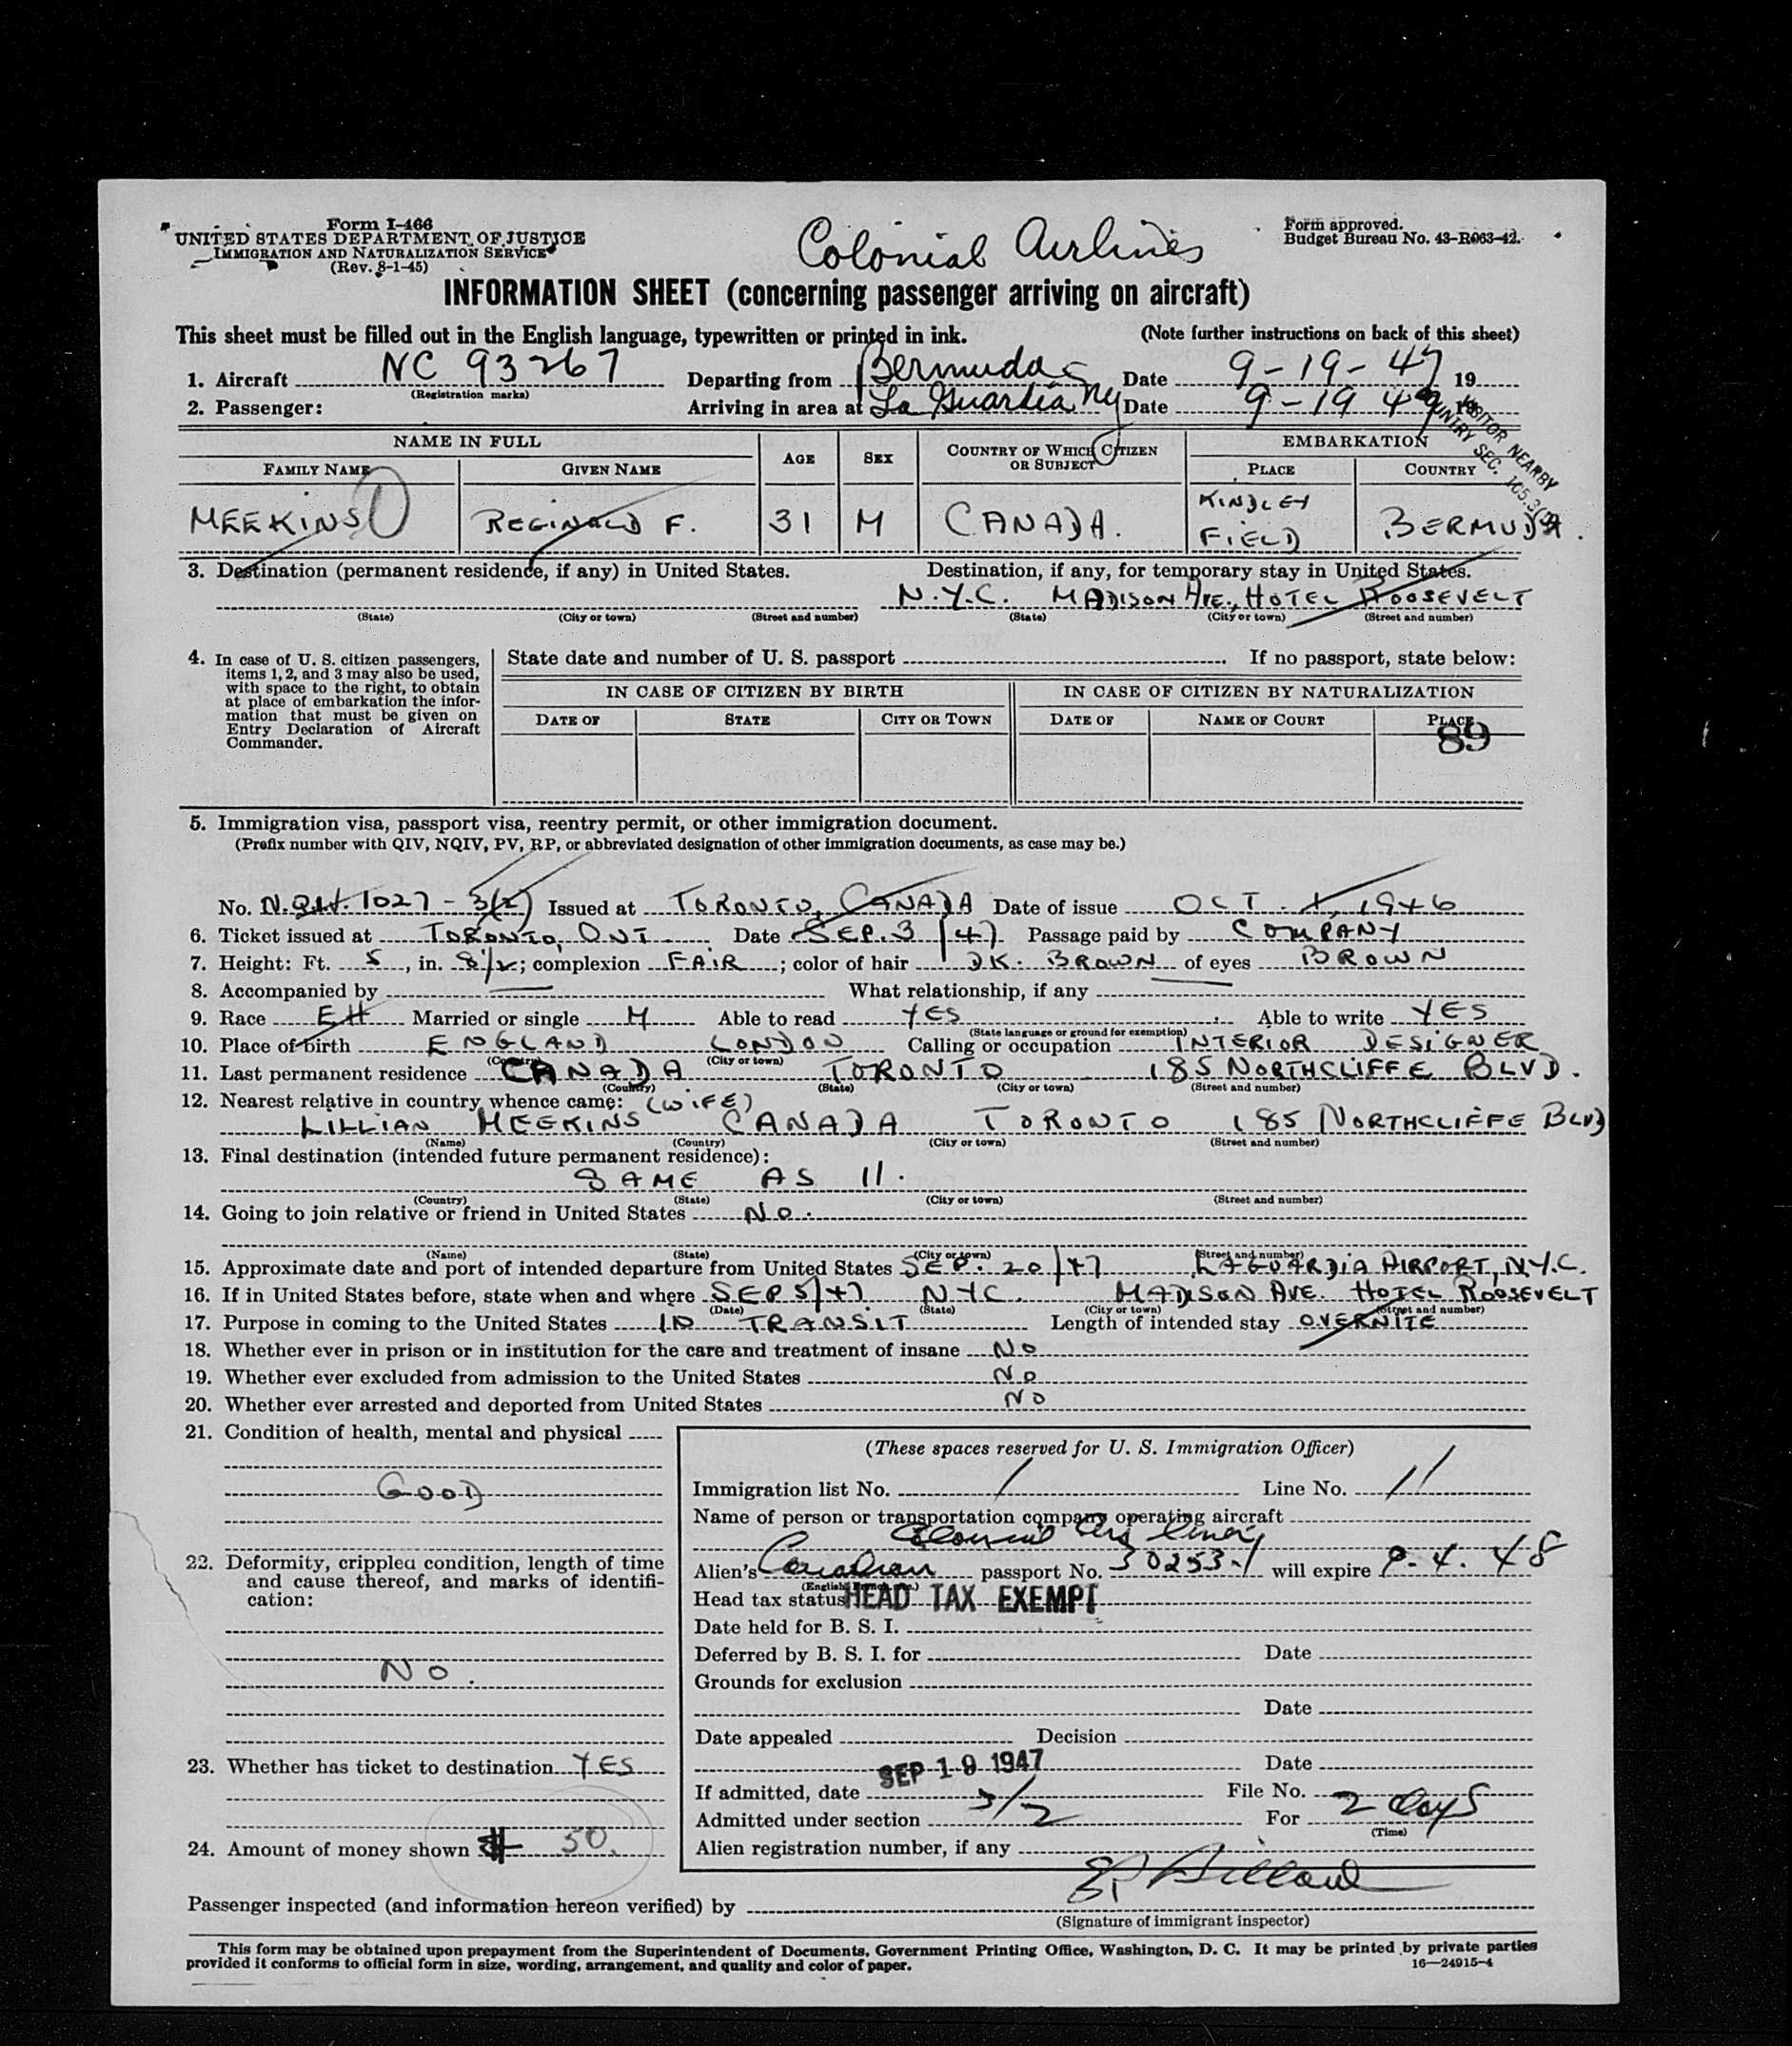 Form I-466
UNITED STATES DEPARTMENT OF JUSTICE
IMMIGRATION AND NATURALIZATION SERVICE
(Rev. 8-1-45)
Colonial Airlines
Form approved.
Budget Bureau No. 43-R063-42.
INFORMATION SHEET (concerning passenger arriving on aircraft)
This sheet must be filled out in the English language, typewritten or printed in ink. (Note further instructions on back of this sheet)
1. Aircraft NC 93267 Departing from Bermuda Date 9-19-47 19
(Registration marks)
2. Passenger: Arriving in area at La Guardia NY Date 9-19 47 19
VISITOR NEARBY
COUNTRY SEC. 105.3
NAME IN FULL AGE SEX COUNTRY OF WHICH CITIZEN OR SUBJECT EMBARKATION
FAMILY NAME GIVEN NAME PLACE COUNTRY
MEEKINS REGINALD F. 31 M CANADA. KINDLEY FIELD BERMUDA.
3. Destination (permanent residence, if any) in United States. Destination, if any, for temporary stay in United States.
N.Y.C. MADISON AVE., HOTEL ROOSEVELT
(State) (City or town) (Street and number) (State) (City or town) (Street and number)
4. In case of U. S. citizen passengers, items 1, 2, and 3 may also be used, with space to the right, to obtain at place of embarkation the information that must be given on Entry Declaration of Aircraft Commander.
State date and number of U. S. passport If no passport, state below:
IN CASE OF CITIZEN BY BIRTH IN CASE OF CITIZEN BY NATURALIZATION
DATE OF STATE CITY OR TOWN DATE OF NAME OF COURT PLACE
89
5. Immigration visa, passport visa, reentry permit, or other immigration document.
(Prefix number with QIV, NQIV, PV, RP, or abbreviated designation of other immigration documents, as case may be.)
No. N.Q.I.V. 1027-3(2) Issued at TORONTO, CANADA Date of issue OCT. 1, 1946
6. Ticket issued at TORONTO, ONT Date SEP. 3/47 Passage paid by COMPANY
7. Height: Ft. 5, in. 8 1/2; complexion FAIR; color of hair DK. BROWN of eyes BROWN
8. Accompanied by — What relationship, if any —
9. Race EH Married or single M Able to read YES Able to write YES
(State language or ground for exemption)
10. Place of birth ENGLAND LONDON Calling or occupation INTERIOR DESIGNER
(Country) (City or town)
11. Last permanent residence CANADA TORONTO 185 NORTHCLIFFE BLVD.
(Country) (State) (City or town) (Street and number)
12. Nearest relative in country whence came: (WIFE)
LILLIAN MEEKINS CANADA TORONTO 185 NORTHCLIFFE BLVD
(Name) (Country) (City or town) (Street and number)
13. Final destination (intended future permanent residence):
SAME AS 11.
(Country) (State) (City or town) (Street and number)
14. Going to join relative or friend in United States NO.
(Name) (State) (City or town) (Street and number)
15. Approximate date and port of intended departure from United States SEP. 20/47 LAGUARDIA AIRPORT, N.Y.C.
16. If in United States before, state when and where SEP 5/47 NYC. MADISON AVE. HOTEL ROOSEVELT
(Date) (State) (City or town) (Street and number)
17. Purpose in coming to the United States IN TRANSIT Length of intended stay OVERNITE
18. Whether ever in prison or in institution for the care and treatment of insane NO
19. Whether ever excluded from admission to the United States NO
20. Whether ever arrested and deported from United States NO
21. Condition of health, mental and physical
GOOD
22. Deformity, crippled condition, length of time and cause thereof, and marks of identification:
NO.
23. Whether has ticket to destination YES
24. Amount of money shown $ 50.
(These spaces reserved for U. S. Immigration Officer)
Immigration list No. 1 Line No. 11
Name of person or transportation company operating aircraft
Colonial Airlines
Alien's Canadian passport No. 30253-1 will expire 9.4.48
(English, French, etc.)
Head tax status HEAD TAX EXEMPT
Date held for B. S. I.
Deferred by B. S. I. for Date
Grounds for exclusion
Date
Date appealed Decision
Date
If admitted, date SEP 19 1947 File No.
Admitted under section 3/2 For 2 days
(Time)
Alien registration number, if any
Passenger inspected (and information hereon verified) by
(Signature of immigrant inspector)
This form may be obtained upon prepayment from the Superintendent of Documents, Government Printing Office, Washington, D. C. It may be printed by private parties
provided it conforms to official form in size, wording, arrangement, and quality and color of paper. 16—24915-4